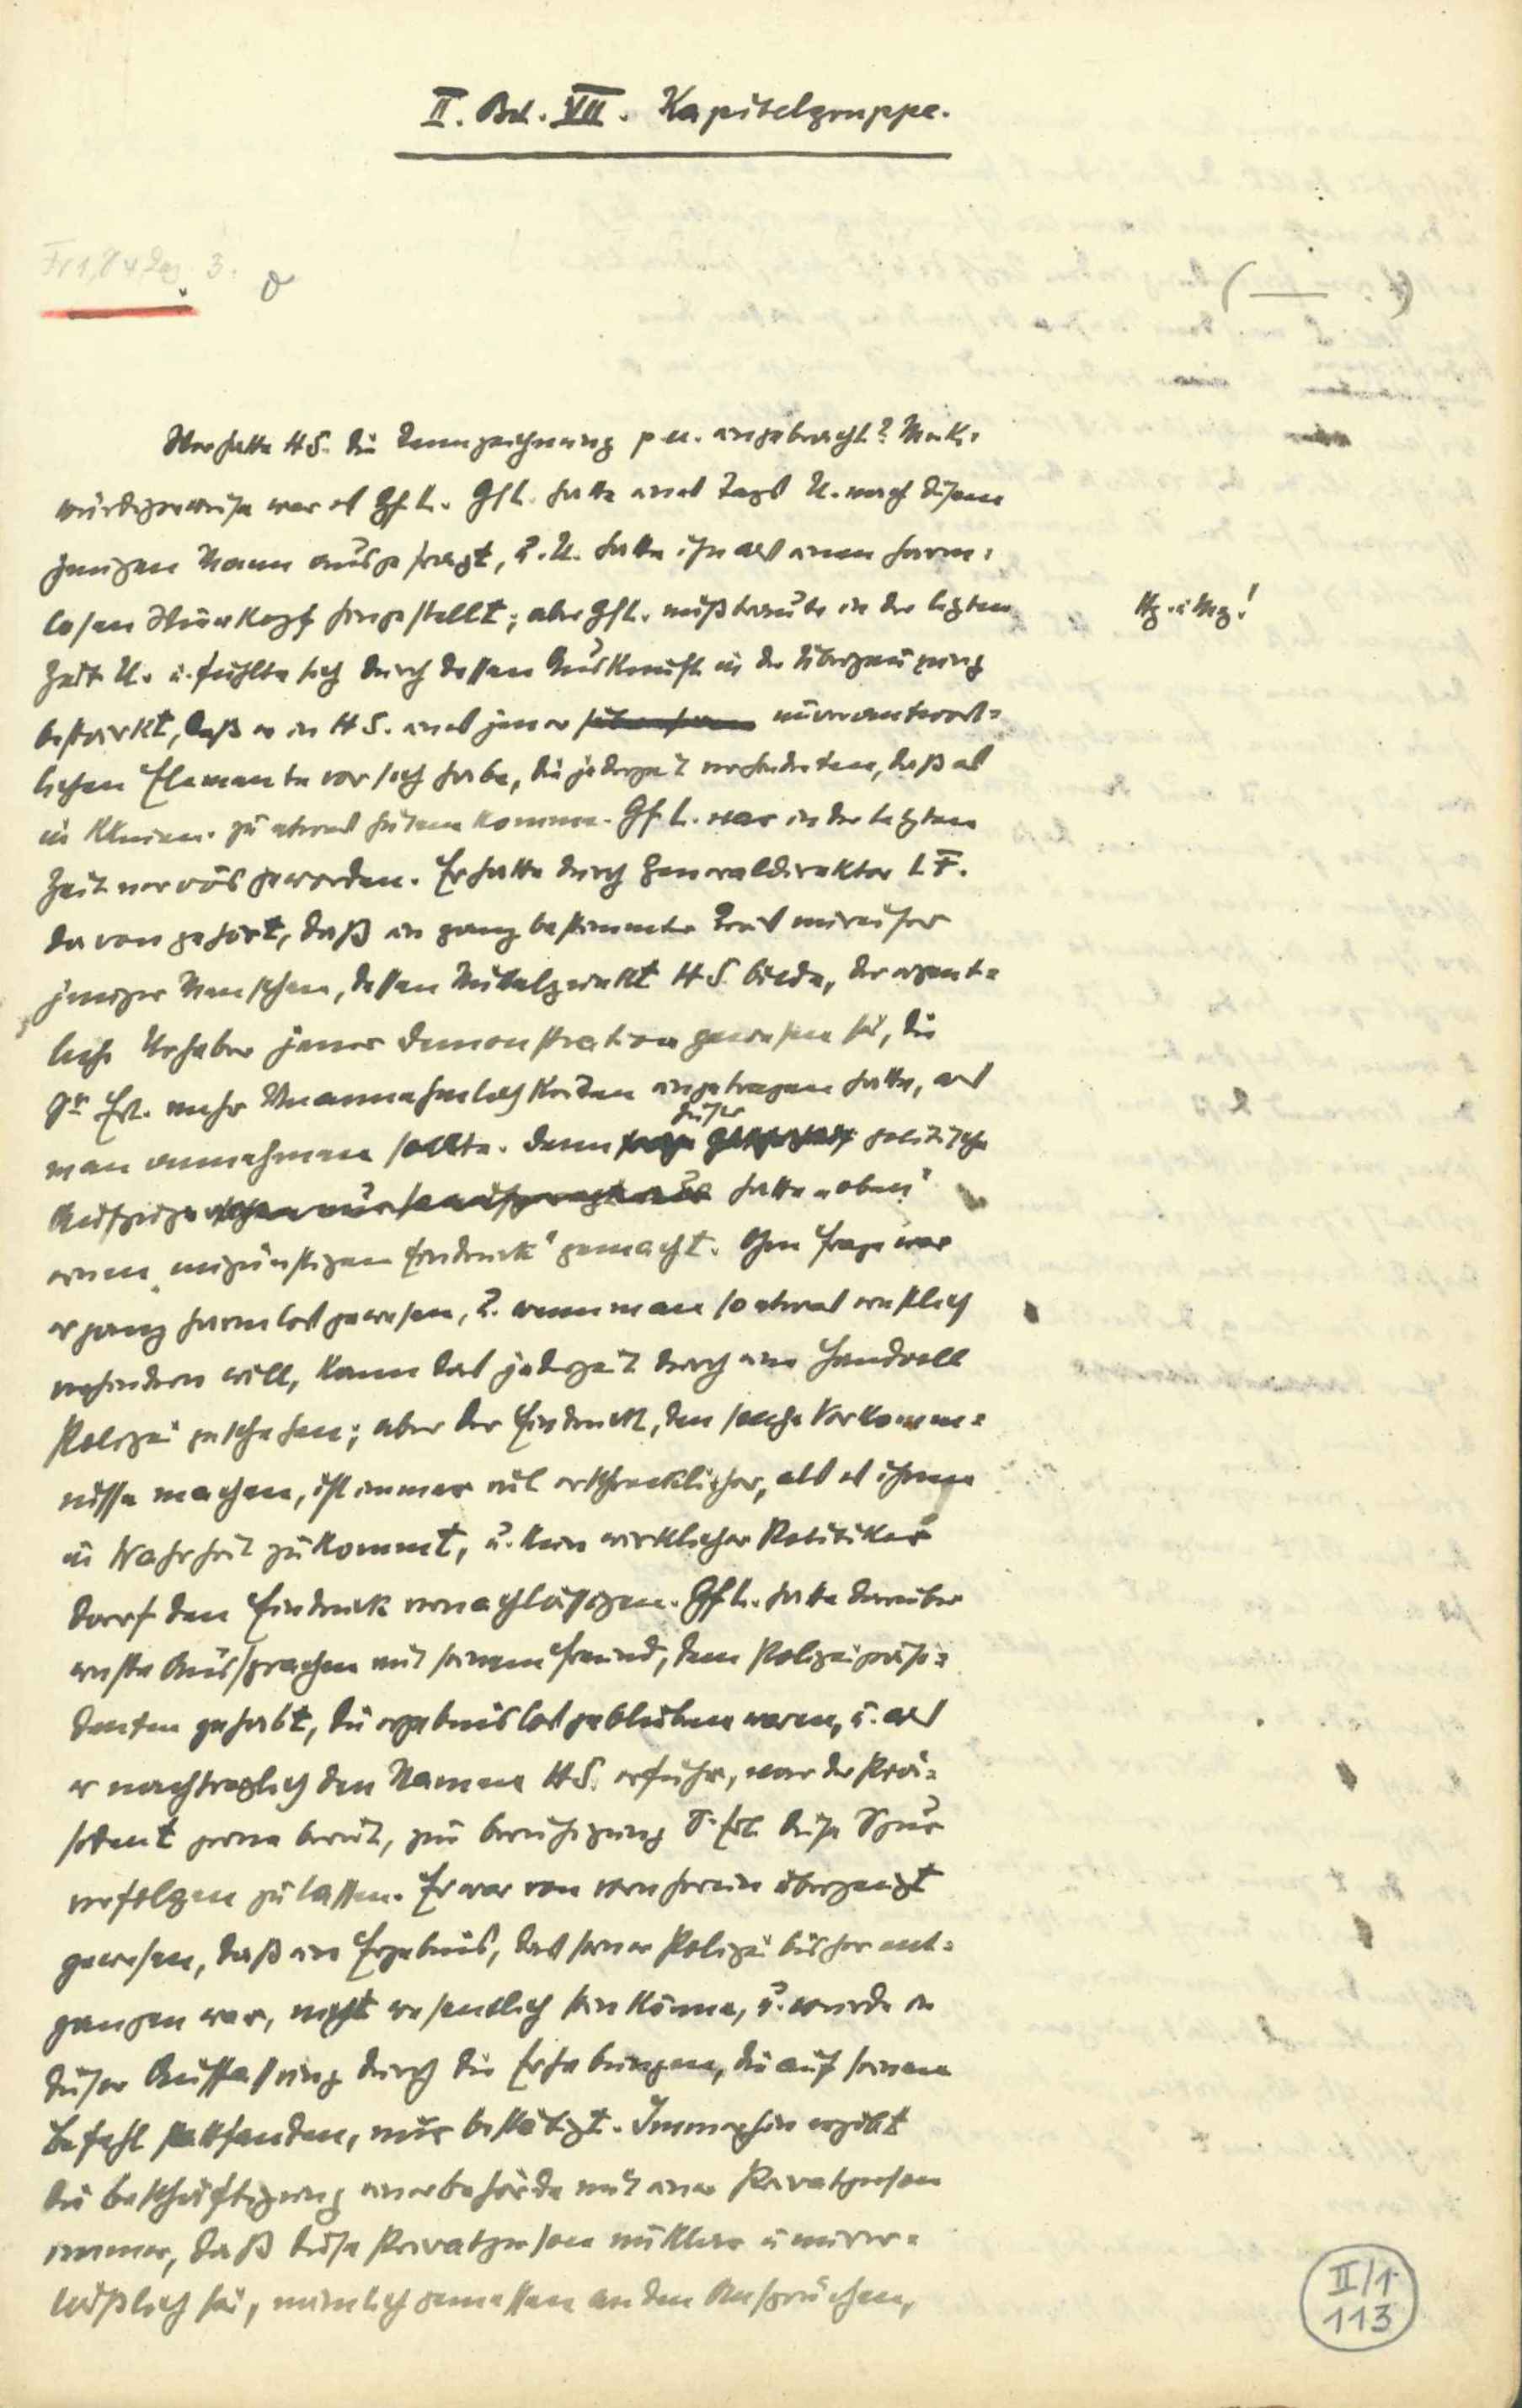 II. Bd. VII. Kapitelgruppe.
3.
( — )
Wer hatte HS. die Kennzeichnung p.u. angebracht? Merk-
würdigerweise war es Gf L. Gf L. hatte eines Tags U. nach diesem
jungen Mann ausgefragt, u. U. hatte ihn als einen harm-
losen Wirrkopf hingestellt; aber Gf L. mißtraute in der letzten
Zeit U. u. fühlte sich durch dessen Auskunft in der Überzeugung
bestärkt, daß er in HS. eines jener unverantwort-
lichen Elemente vor sich habe, die jederzeit verhinderten, daß es
in zu etwas Gutem komme. Gf L. war in der letzten
Zeit nervös geworden. Er hatte durch Generaldirektor LF.
davon gehört, daß ein ganz bestimmter Kreis unreifer
junger Menschen, dessen Mittelpunkt HS. bilde, der eigent-
liche Urheber jener Demonstration gewesen sei, die
Sr Erl. mehr Unannehmlichkeiten eingetragen hatte, als
man annehmen sollte. Denn dieser politische
Aufzug hatte „oben"
einen „ungünstigen Eindruck" gemacht. Ohne Frage war
er ganz harmlos gewesen, u. wenn man so etwas ernstlich
verhindern will, kann das jederzeit durch eine Handvoll
Polizei geschehen; aber der Eindruck, den solche Vorkomm-
nisse machen, ist immer viel erschrecklicher, als es ihnen
in Wahrheit zukommt, u. kein wirklicher Politiker
darf den Eindruck vernachlässigen. Gf L. hatte darüber
ernste Aussprachen mit seinem Freund, dem Polizeipräsi-
denten gehabt, die ergebnislos geblieben waren, u. als
er nachträglich den Namen HS. erfuhr, war der Prä-
sident gerne bereit, zur Beruhigung Sr Erl. diese Spur
verfolgen zu lassen. Er war von vornherein überzeugt
gewesen, daß ein Ergebnis, das seiner Polizei bisher ent-
gangen war, nicht wesentlich sein könne, u. wurde in
dieser Auffassung durch die Erhebungen, die auf seinen
Befehl stattfanden, nur bestätigt. Immerhin ergibt
die Beschäftigung einer Behörde mit einer Privatperson
immer, daß diese Privatperson unklar u unver-
läßlich sei, nämlich gemessen an den Ansprüchen,
II/1
113